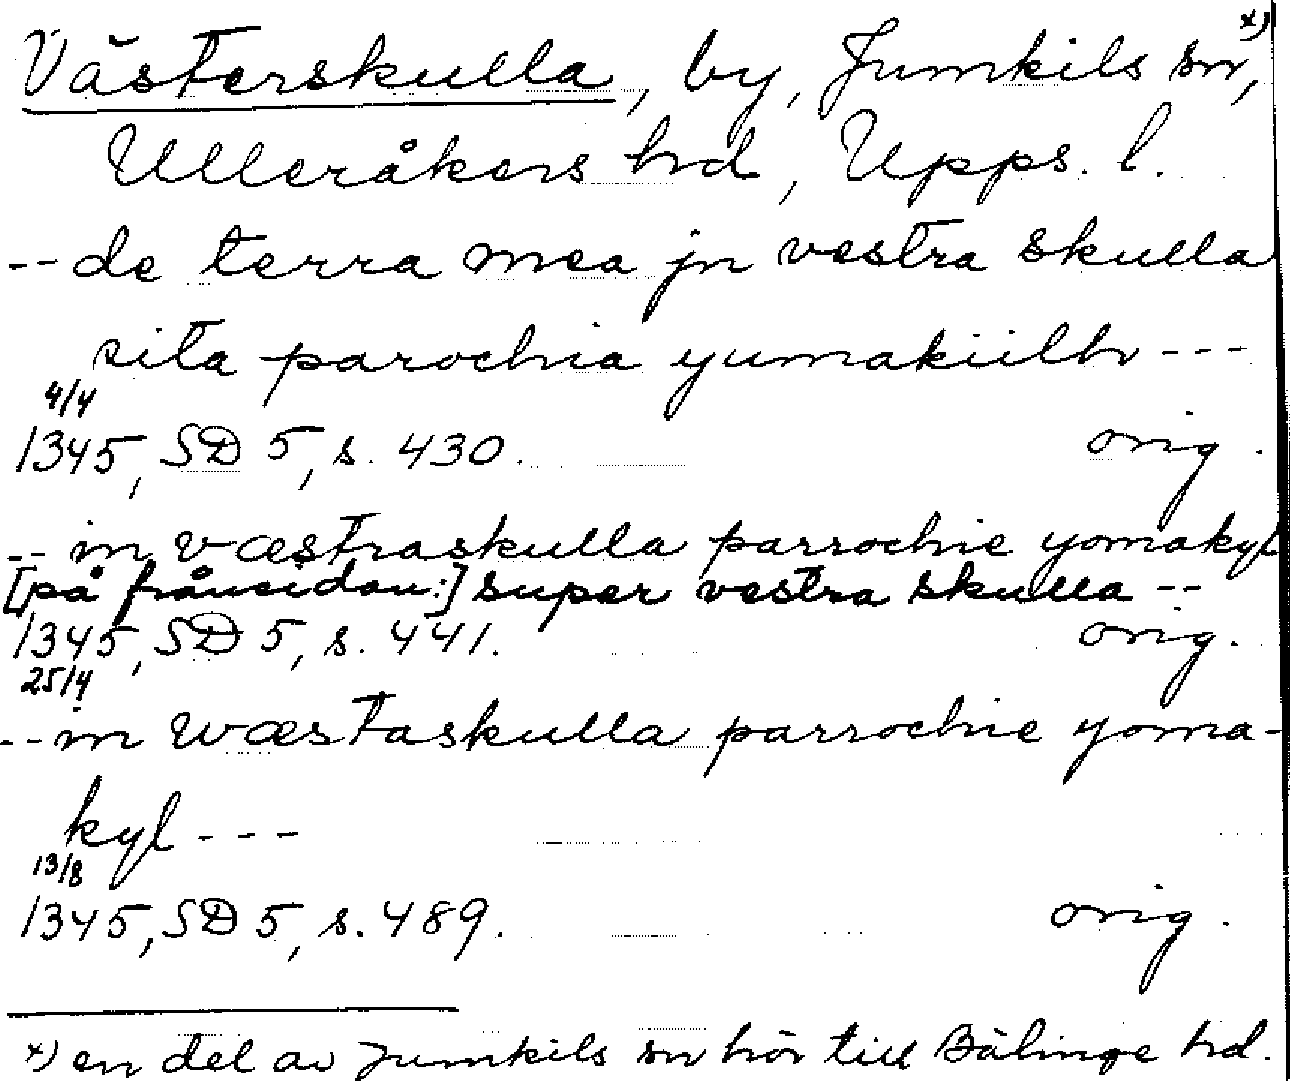 Västerskulla, by, Jumkils sn, x)
Ulleråkers hd, Upps. l.
-- de terra mea jn vestra skulla
sita parochia yumakiilh ---
4/4
1345, SD 5, s. 430. orig.
-- in væstraskulla parrochie yomakyl
[på frånsidan:] super vestra skulla --
1345, SD 5, s. 441. orig.
25/4
-- in wæstaskulla parrochie yoma-
kyl ---
13/8
1345, SD 5, s. 489. orig.
x) en del av Jumkils sn hör till Bälinge hd.